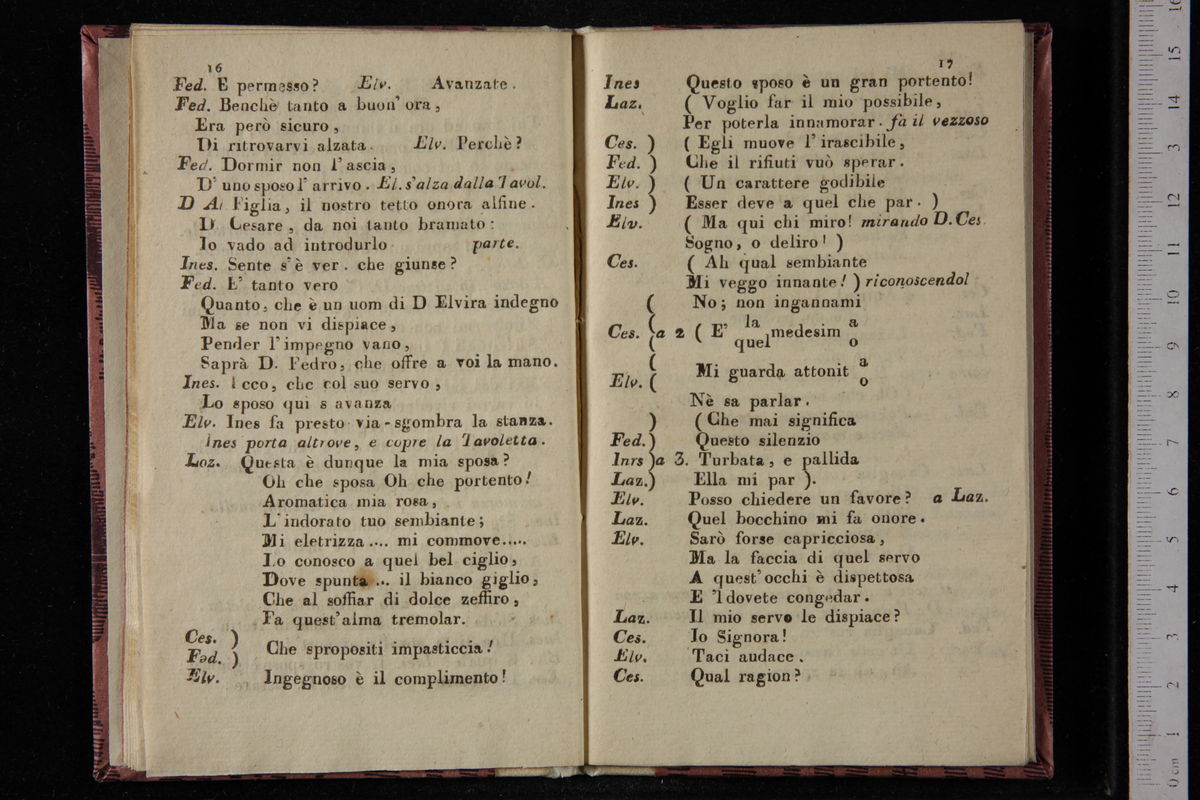 16
Fed. E permesso? Elv. Avanzate.
Fed. Benchè tanto a buon' ora,
Era però sicuro,
Di ritrovarvi alzata. Elv. Perchè?
Fed. Dormir non l'ascia,
D' uno sposo l' arrivo. El. s'alza dalla Tavol.
D Al Figlia, il nostro tetto onora alfine.
D. Cesare, da noi tanto bramato:
Io vado ad introdurlo parte.
Ines. Sente s'è ver. che giunse?
Fed. E' tanto vero
Quanto, che è un uom di D Elvira indegno
Ma se non vi dispiace,
Pender l'impegno vano,
Saprà D. Pedro, che offre a voi la mano.
Ines. Ecco, che col suo servo,
Lo sposo qui s avanza
Elv. Ines fa presto via-sgombra la stanza.
Ines porta altrove, e copre la Tavoletta.
Loz. Questa è dunque la mia sposa?
Oh che sposa Oh che portento!
Aromatica mia rosa,
L'indorato tuo sembiante;
Mi eletrizza.... mi commove.....
Lo conosco a quel bel ciglio,
Dove spunta ... il bianco giglio,
Che al soffiar di dolce zeffiro,
Fa quest'alma tremolar.
Ces. )
Fad. ) Che spropositi impasticcia!
Elv. Ingegnoso è il complimento!
17
Ines Questo sposo è un gran portento!
Laz. ( Voglio far il mio possibile,
Per poterla innamorar. fa il vezzoso
Ces. ) ( Egli muove l' irascibile,
Fed. ) Che il rifiuti vuò sperar.
Elv. ) ( Un carattere godibile
Ines ) Esser deve a quel che par. )
Elv. ( Ma qui chi miro! mirando D. Ces
Sogno, o deliro! )
Ces. ( Ah qual sembiante
Mi veggo innante! ) riconoscendol
( No; non ingannami
Ces. (a 2 ( E' la quel medesim a o
Elv. ( Mi guarda attonit a o
Nè sa parlar.
) ( Che mai significa
Fed.) Questo silenzio
Inrs )a 3. Turbata, e pallida
Laz.) Ella mi par ).
Elv. Posso chiedere un favore? a Laz.
Laz. Quel bocchino mi fa onore.
Elv. Sarò forse capricciosa,
Ma la faccia di quel servo
A quest' occhi è dispettosa
E 'l dovete congedar.
Laz. Il mio servo le dispiace?
Ces. Io Signora!
Elv. Taci audace.
Ces. Qual ragion?
0 cm 1 2 3 4 5 6 7 8 9 10 11 12 13 14 15 16